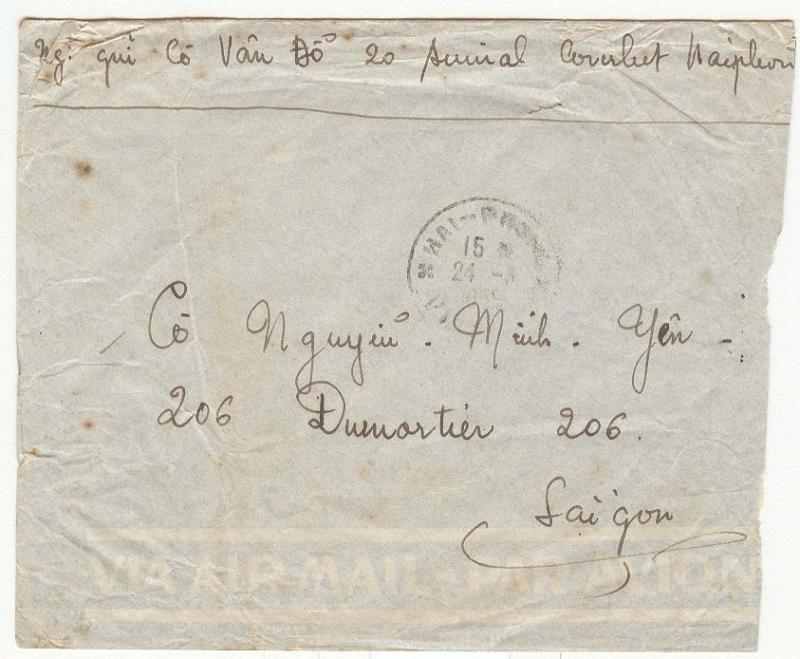 Ng: gui Cô Vân Đổ 20 Amiral Courbet Haiphon
HAI-PHO
15
24 -
Cô Nguyễn . Minh . Yên -
206 Dumortier 206.
Saigon
VIA AIR MAIL-PAR AVION